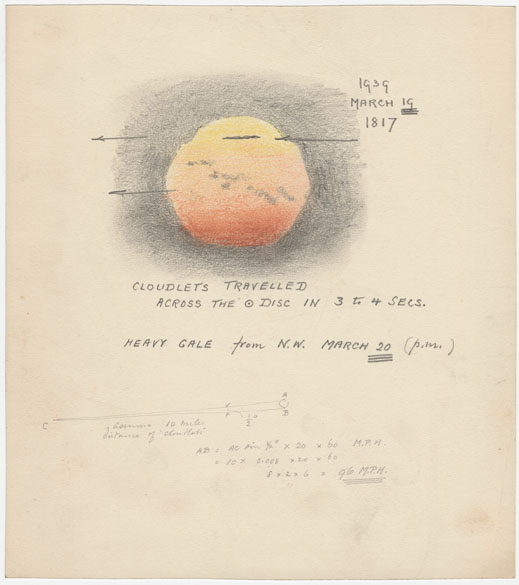 1939
MARCH 19
1817
CLOUDLETS TRAVELLED
ACROSS THE ☉ DISC IN 3 to 4 SECS.
HEAVY GALE from N.W. MARCH 20 (p.m.)
A
C
B
10 miles
distance of cloudlets
AB = AC sin ½° × 20 × 60 M.P.H.
= 10 × 0.008 × 20 × 60
8 × 2 × 6 = 96 M.P.H.